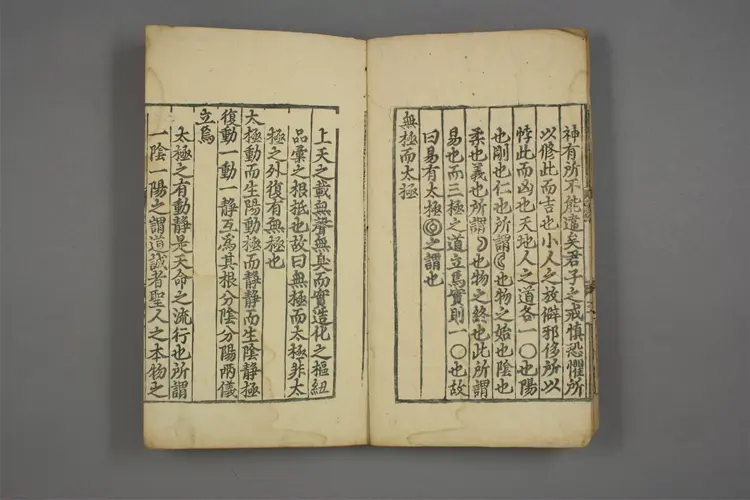 神有所不能違矣君子之戒慎恐懼所
以修此而吉也小人之放僻邪侈所以
悖此而凶也天地人之道各一〇也陽
也剛也仁也所謂☾也物之始也陰也
柔也義也所謂☽也物之終也此所謂
易也而三極之道立焉實則一〇也故
曰易有太極◎之謂也
無極而太極
上天之載無聲無臭而實造化之樞紐
品彙之根抵也故曰無極而太極非太
極之外復有無極也
太極動而生陽動極而静静而生陰静極
復動一動一静互爲其根分陰分陽兩儀
立焉
太極之有動静是天命之流行也所謂
一陰一陽之謂道誠者聖人之本物之